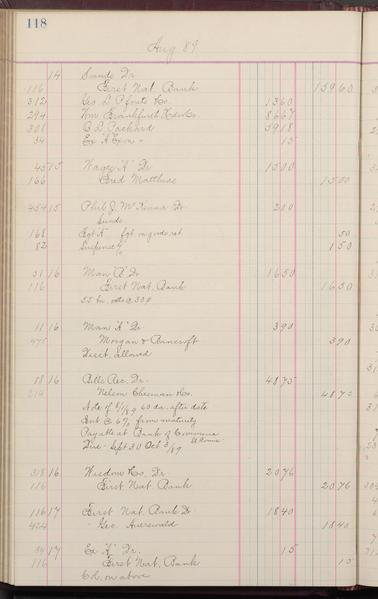 118
Aug 89
14 Sunds Dr
116 First Nat. Bank 159 60
312 Geo. D. Pfouts Co. 13 60
294 Wm Frankfurth Hdw Co. 86 67
308 C. D. Packard 59 18
34 Ex "A" 15
45 15 Wages "A" Dr 15 00
166 Fred Matthias 15 00
454 15 Phil J. McKenna Dr 2 00
Sunds
168 frt on goods ret 50
82 Suspense % 1 50
31 16 Man "A" Dr. 16 50
116 First Nat. Bank 16 50
55 bu. oats @ 30¢
11 16 Man "A" Dr. 3 90
475 Morgan & Bancroft 3 90
Disct. allowed
18 16 Bills Rec. Dr. 48 75
Nelson Chesman & Co. 48 75
Note of 8/1/89 60 da. after date
Int @ 6% from maturity
Payable at Bank of Commerce
St Louis
Due - Sept 30 Oct 3/89
318 16 Wisdom & Co. Dr. 20 76
116 First Nat. Bank 20 76
116 17 First Nat. Bank Dr 18 40
424 " Geo. Auerswald 18 40
34 17 Ex "A" Dr. 15
116 First Nat. Bank 15
Col. on above